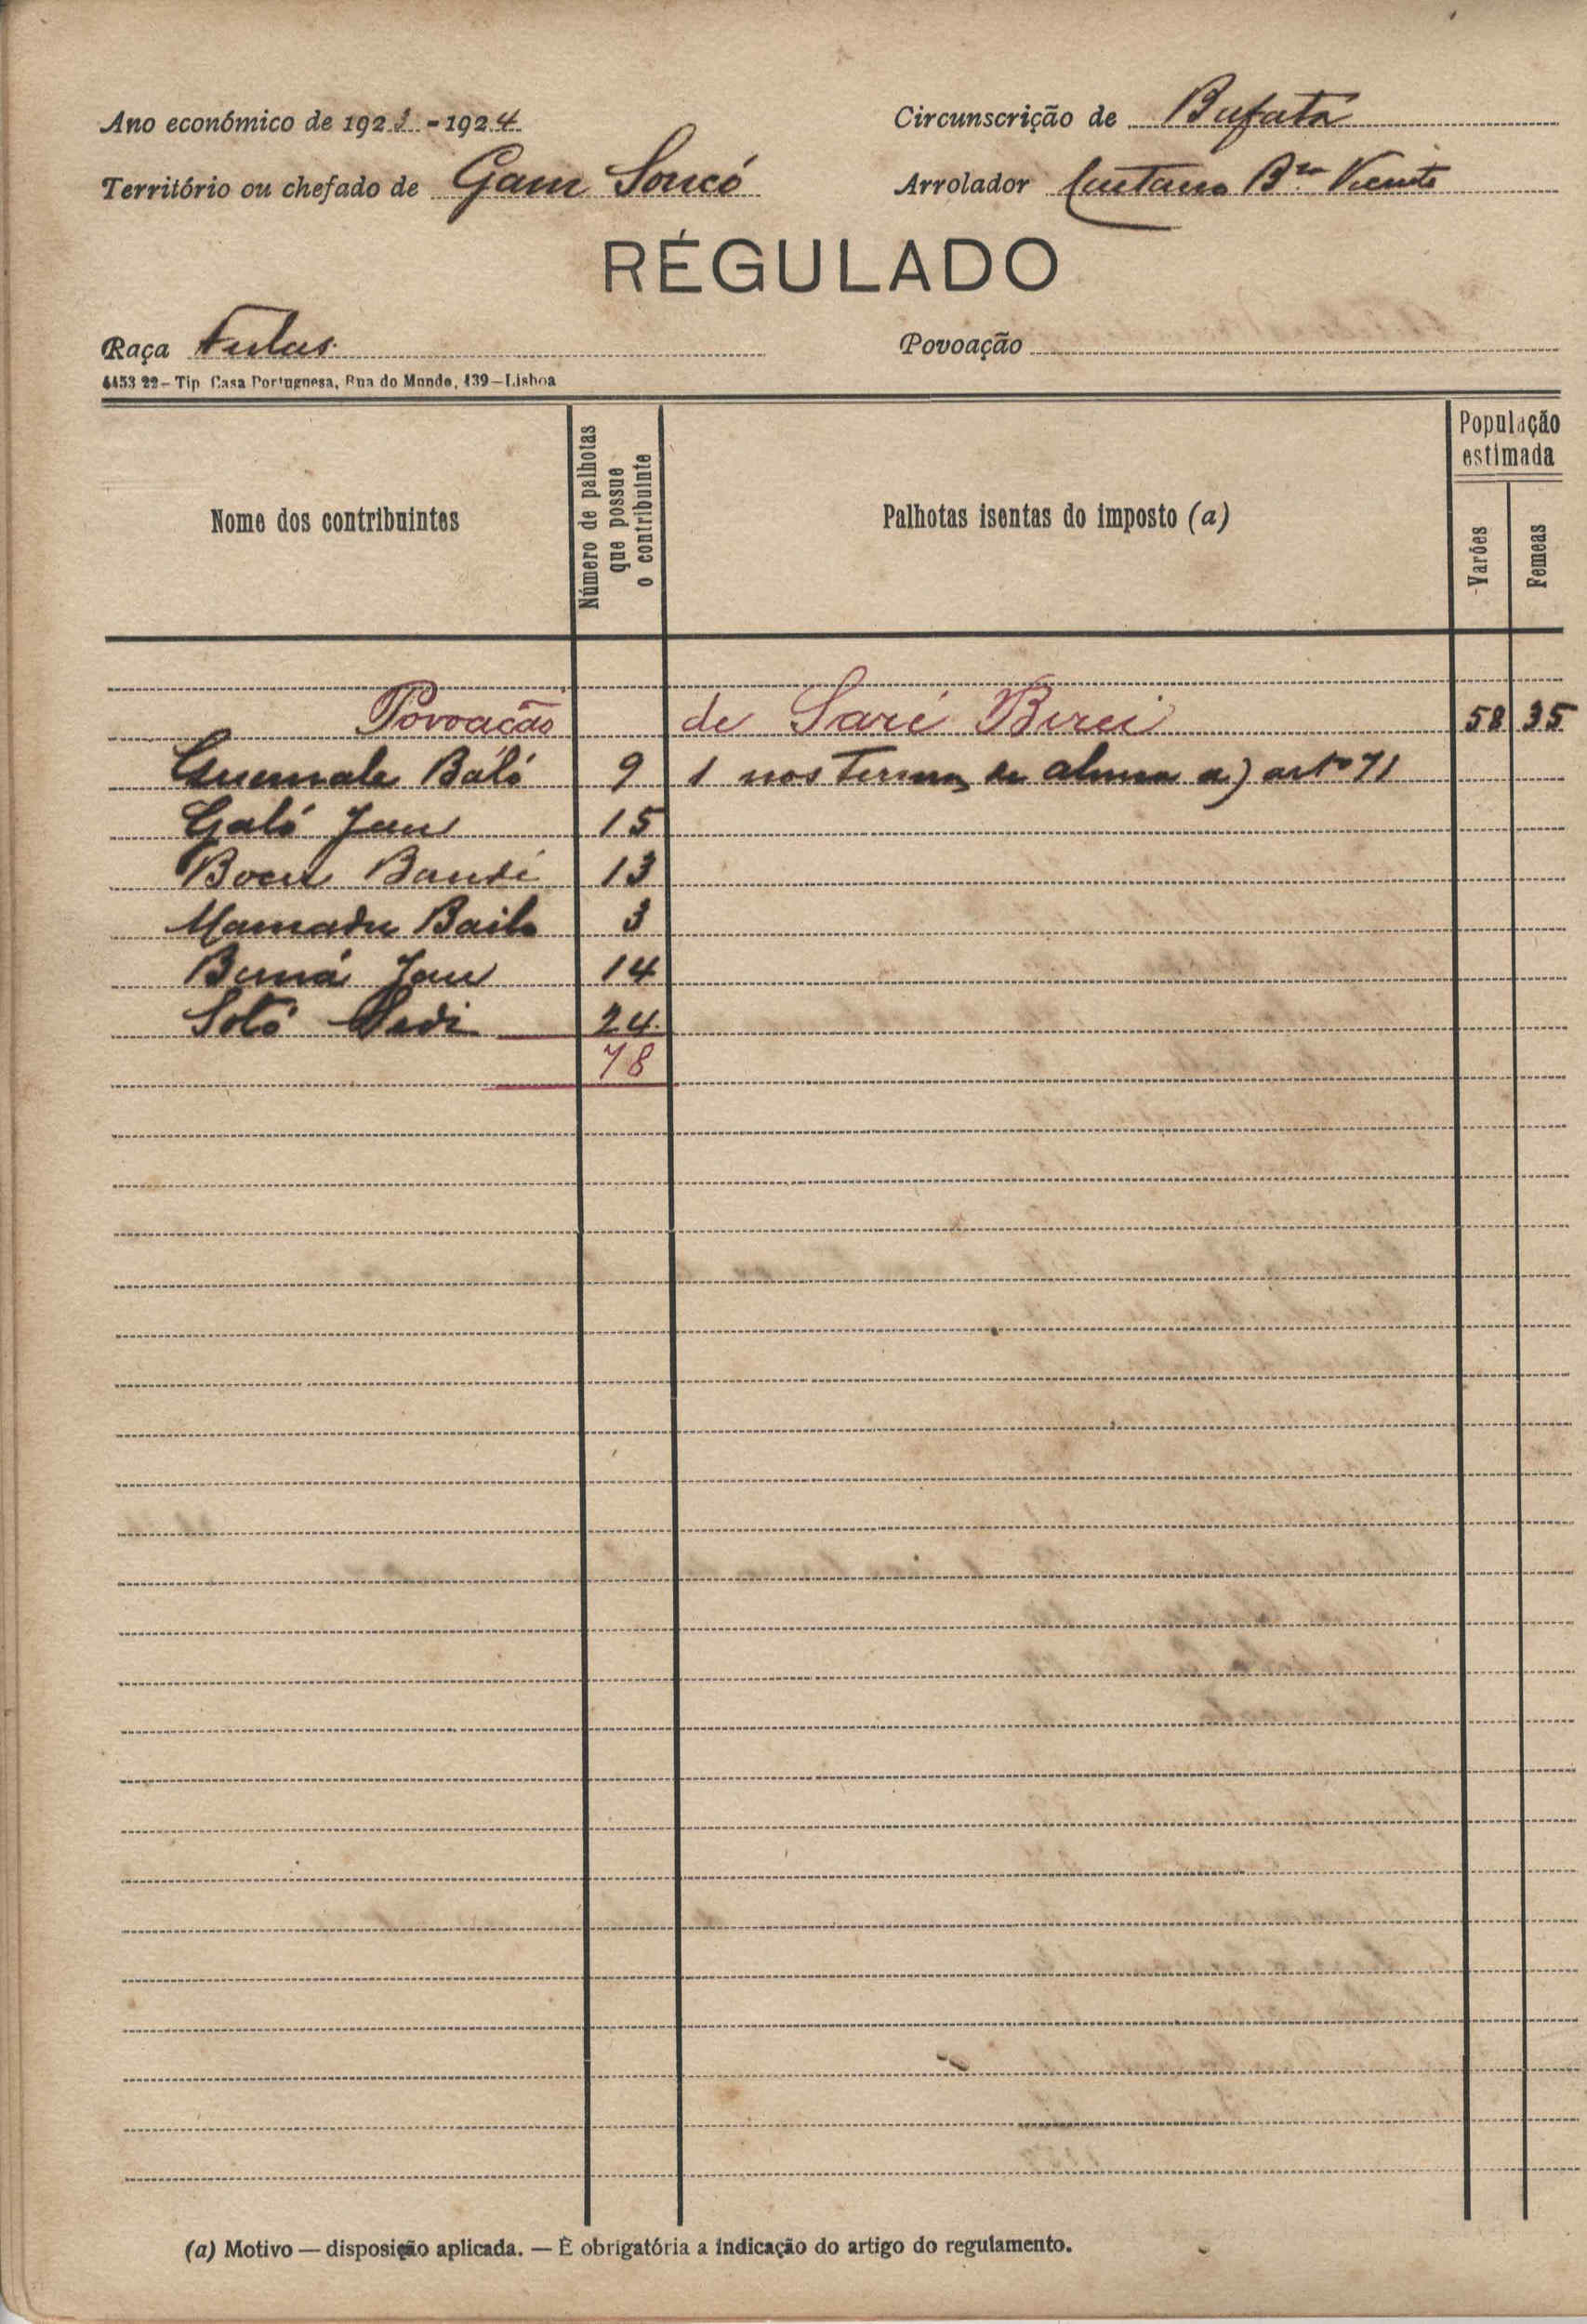 Ano económico de 1923-1924
Circunscrição de Bafatá
Território ou chefado de Gam Soncó
Arrolador Caetano Bto Vicente
RÉGULADO
Raça Fulas
Povoação
4453 22 – Tip. Casa Portuguesa, Rua do Mundo, 139 – Lisboa
Nome dos contribuintes
Número de palhotas que possue o contribuinte
Palhotas isentas do imposto (a)
População estimada
Varões
Femeas
Povoação de Saré Birei 58 35
Guemale Baló 9 1 nos termos da alinea a) artº 71
Galé Jau 15
Bandé 13
Mamadu Bailo 3
Jau 14
Sotó 24
78
(a) Motivo — disposição aplicada. — É obrigatória a indicação do artigo do regulamento.